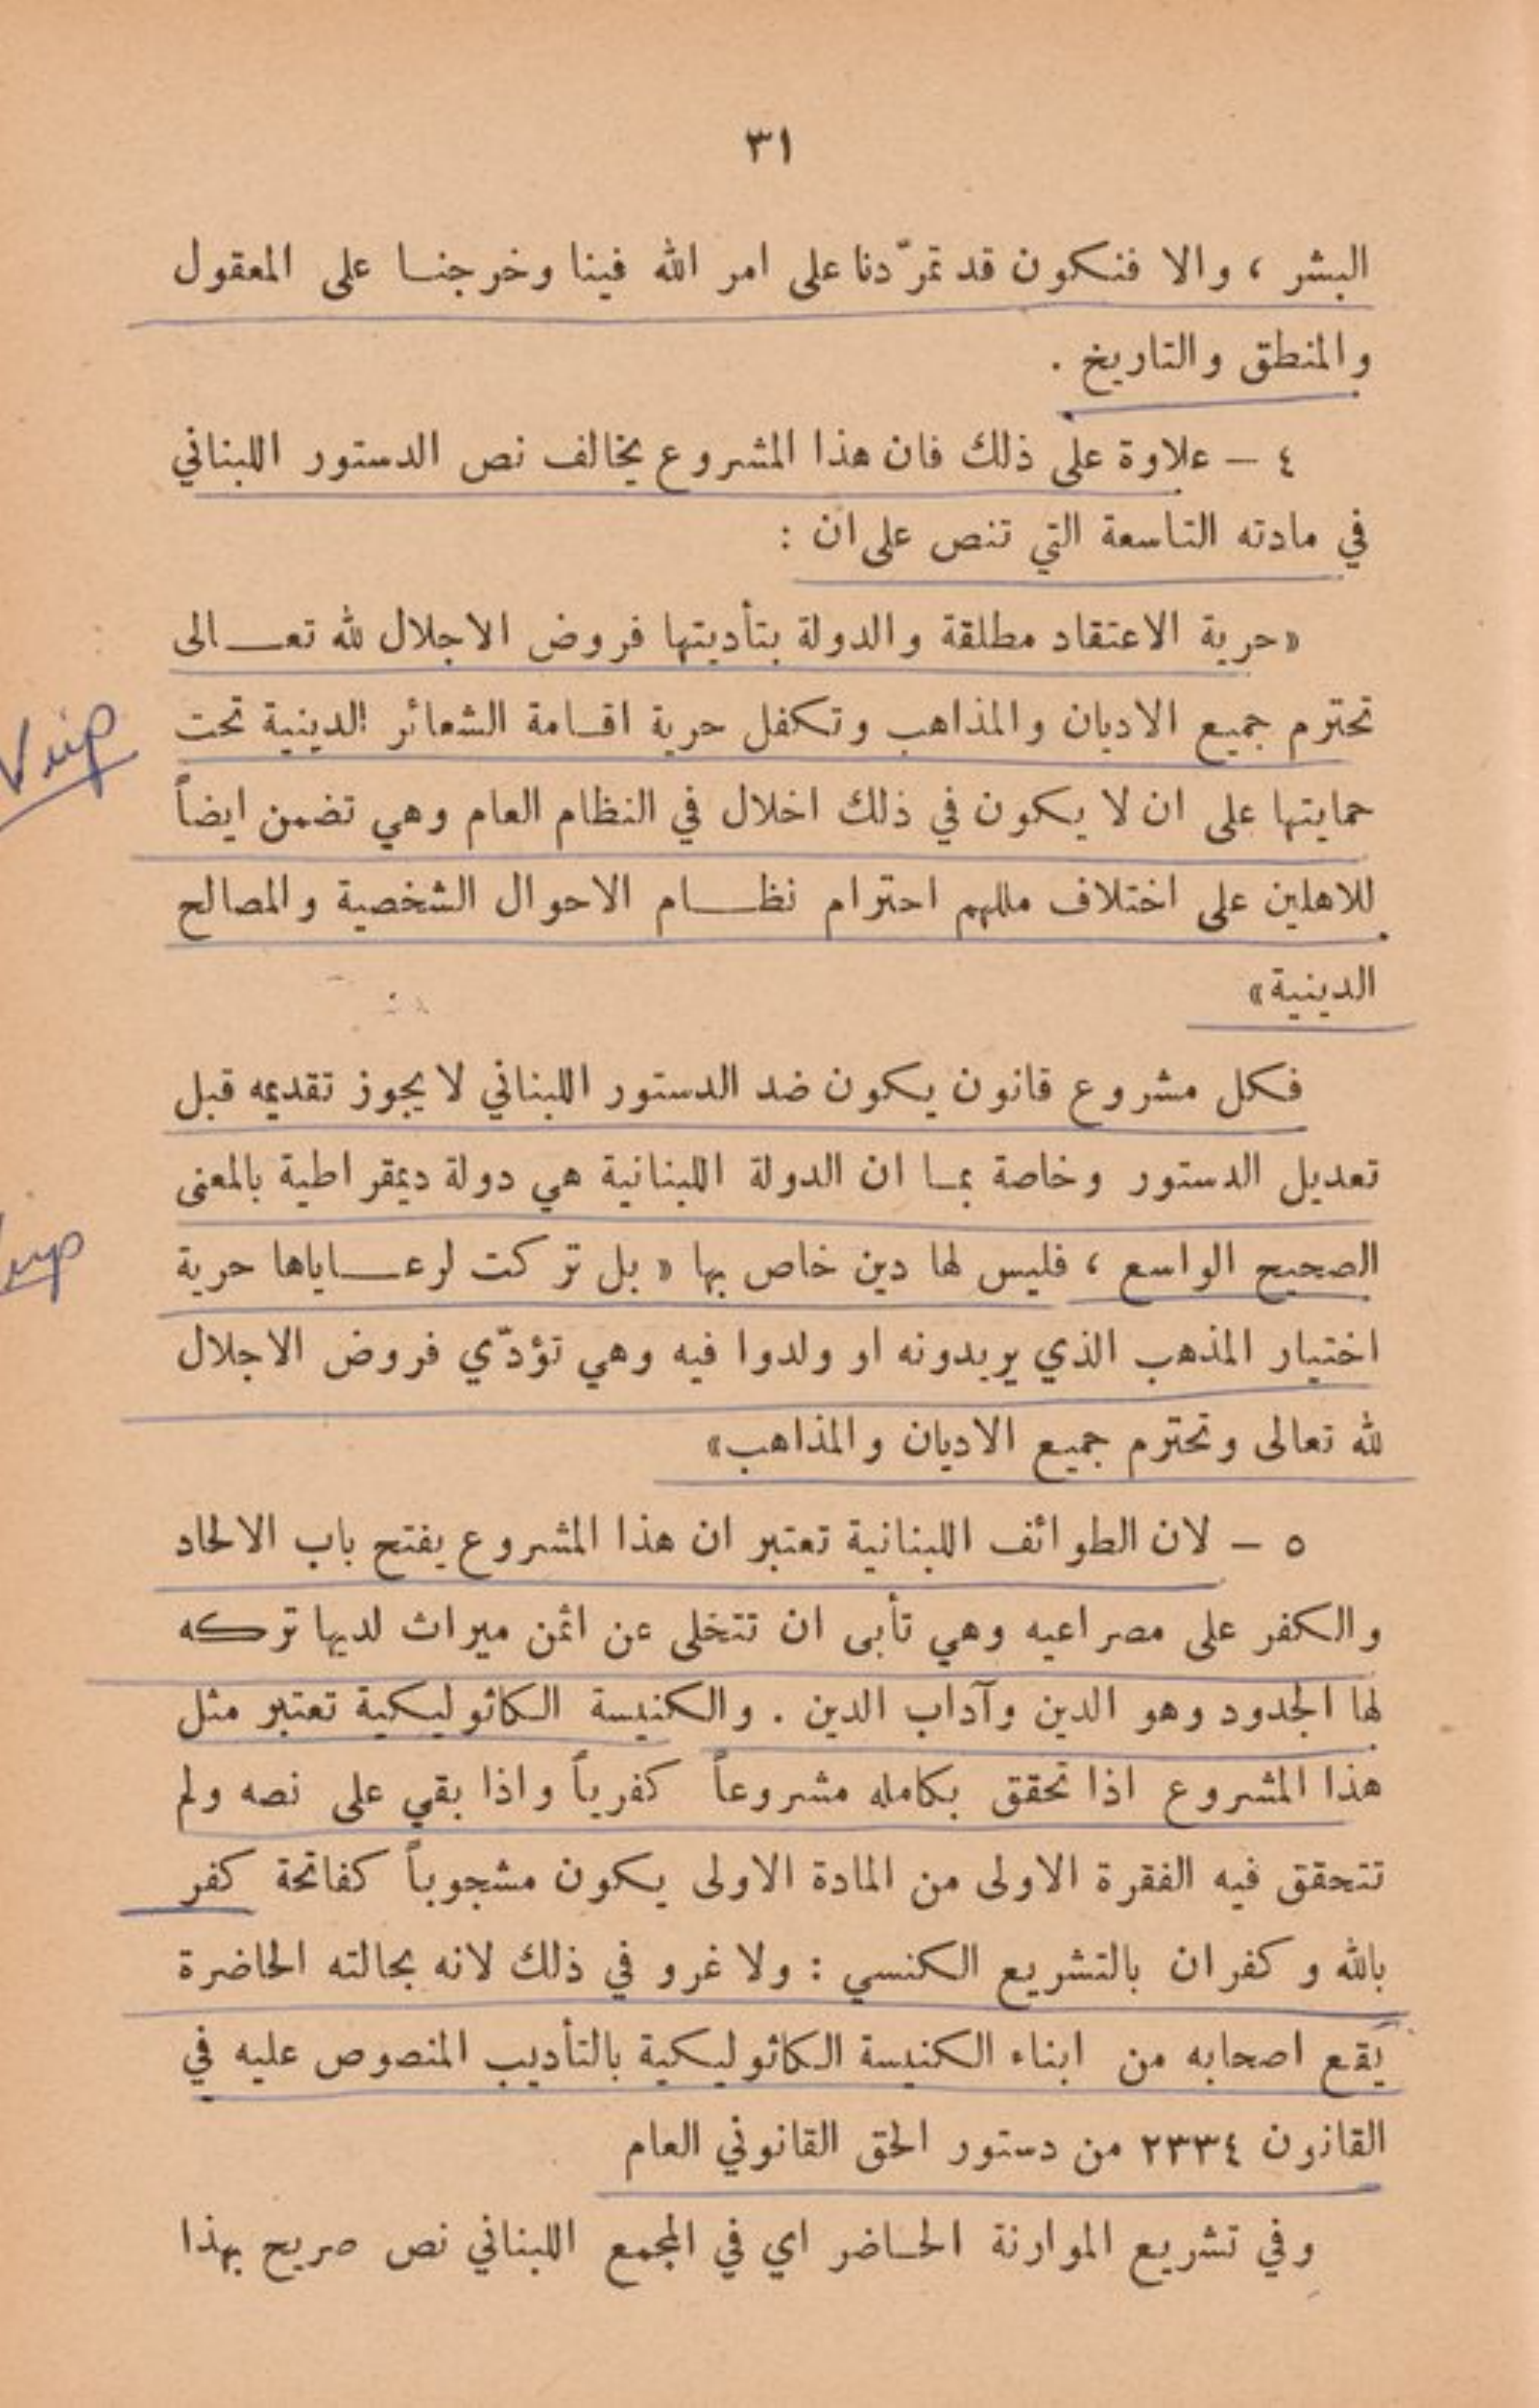 ٣١
البشر ، والا فنكون قد تمرّدنا على امر الله فينا وخرجنـا على المعقول
والمنطق والتاريخ .
٤ – علاوة على ذلك فان هذا المشروع يخالف نص الدستور اللبناني
في مادته التاسعة التي تنص على ان :
«حرية الاعتقاد مطلقة والدولة بتأديتها فروض الاجلال لله تعـالى
تحترم جميع الاديان والمذاهب وتكفل حرية اقـامة الشعائر الدينية تحت
حمايتها على ان لا يكون في ذلك اخلال في النظام العام وهي تضمن ايضاً
للاهلين على اختلاف مللهم احترام نظـام الاحوال الشخصية والمصالح
الدينية»
فكل مشروع قانون يكون ضد الدستور اللبناني لا يجوز تقديمه قبل
تعديل الدستور وخاصة بمـا ان الدولة اللبنانية هي دولة ديمقراطية بالمعنى
الصحيح الواسع ، فليس لها دين خاص بها « بل تركت لرعـاياها حرية
اختيار المذهب الذي يريدونه او ولدوا فيه وهي تؤدّي فروض الاجلال
لله تعالى وتحترم جميع الاديان والمذاهب»
٥ – لان الطوائف اللبنانية تعتبر ان هذا المشروع يفتح باب الالحاد
والكفر على مصراعيه وهي تأبى ان تتخلى عن اثمن ميراث لديها تركه
لها الجدود وهو الدين وآداب الدين . والكنيسة الكاثوليكية تعتبر مثل
هذا المشروع اذا تحقق بكامله مشروعاً كفرياً واذا بقي على نصه ولم
تتحقق فيه الفقرة الاولى من المادة الاولى يكون مشجوباً كفاتحة كفر
بالله وكفران بالتشريع الكنسي : ولا غرو في ذلك لانه بحالته الحاضرة
يقع اصحابه من ابناء الكنيسة الكاثوليكية بالتأديب المنصوص عليه في
القانون ٢٣٣٤ من دستور الحق القانوني العام
وفي تشريع الموارنة الحـاضر اي في المجمع اللبناني نص صريح بهذا